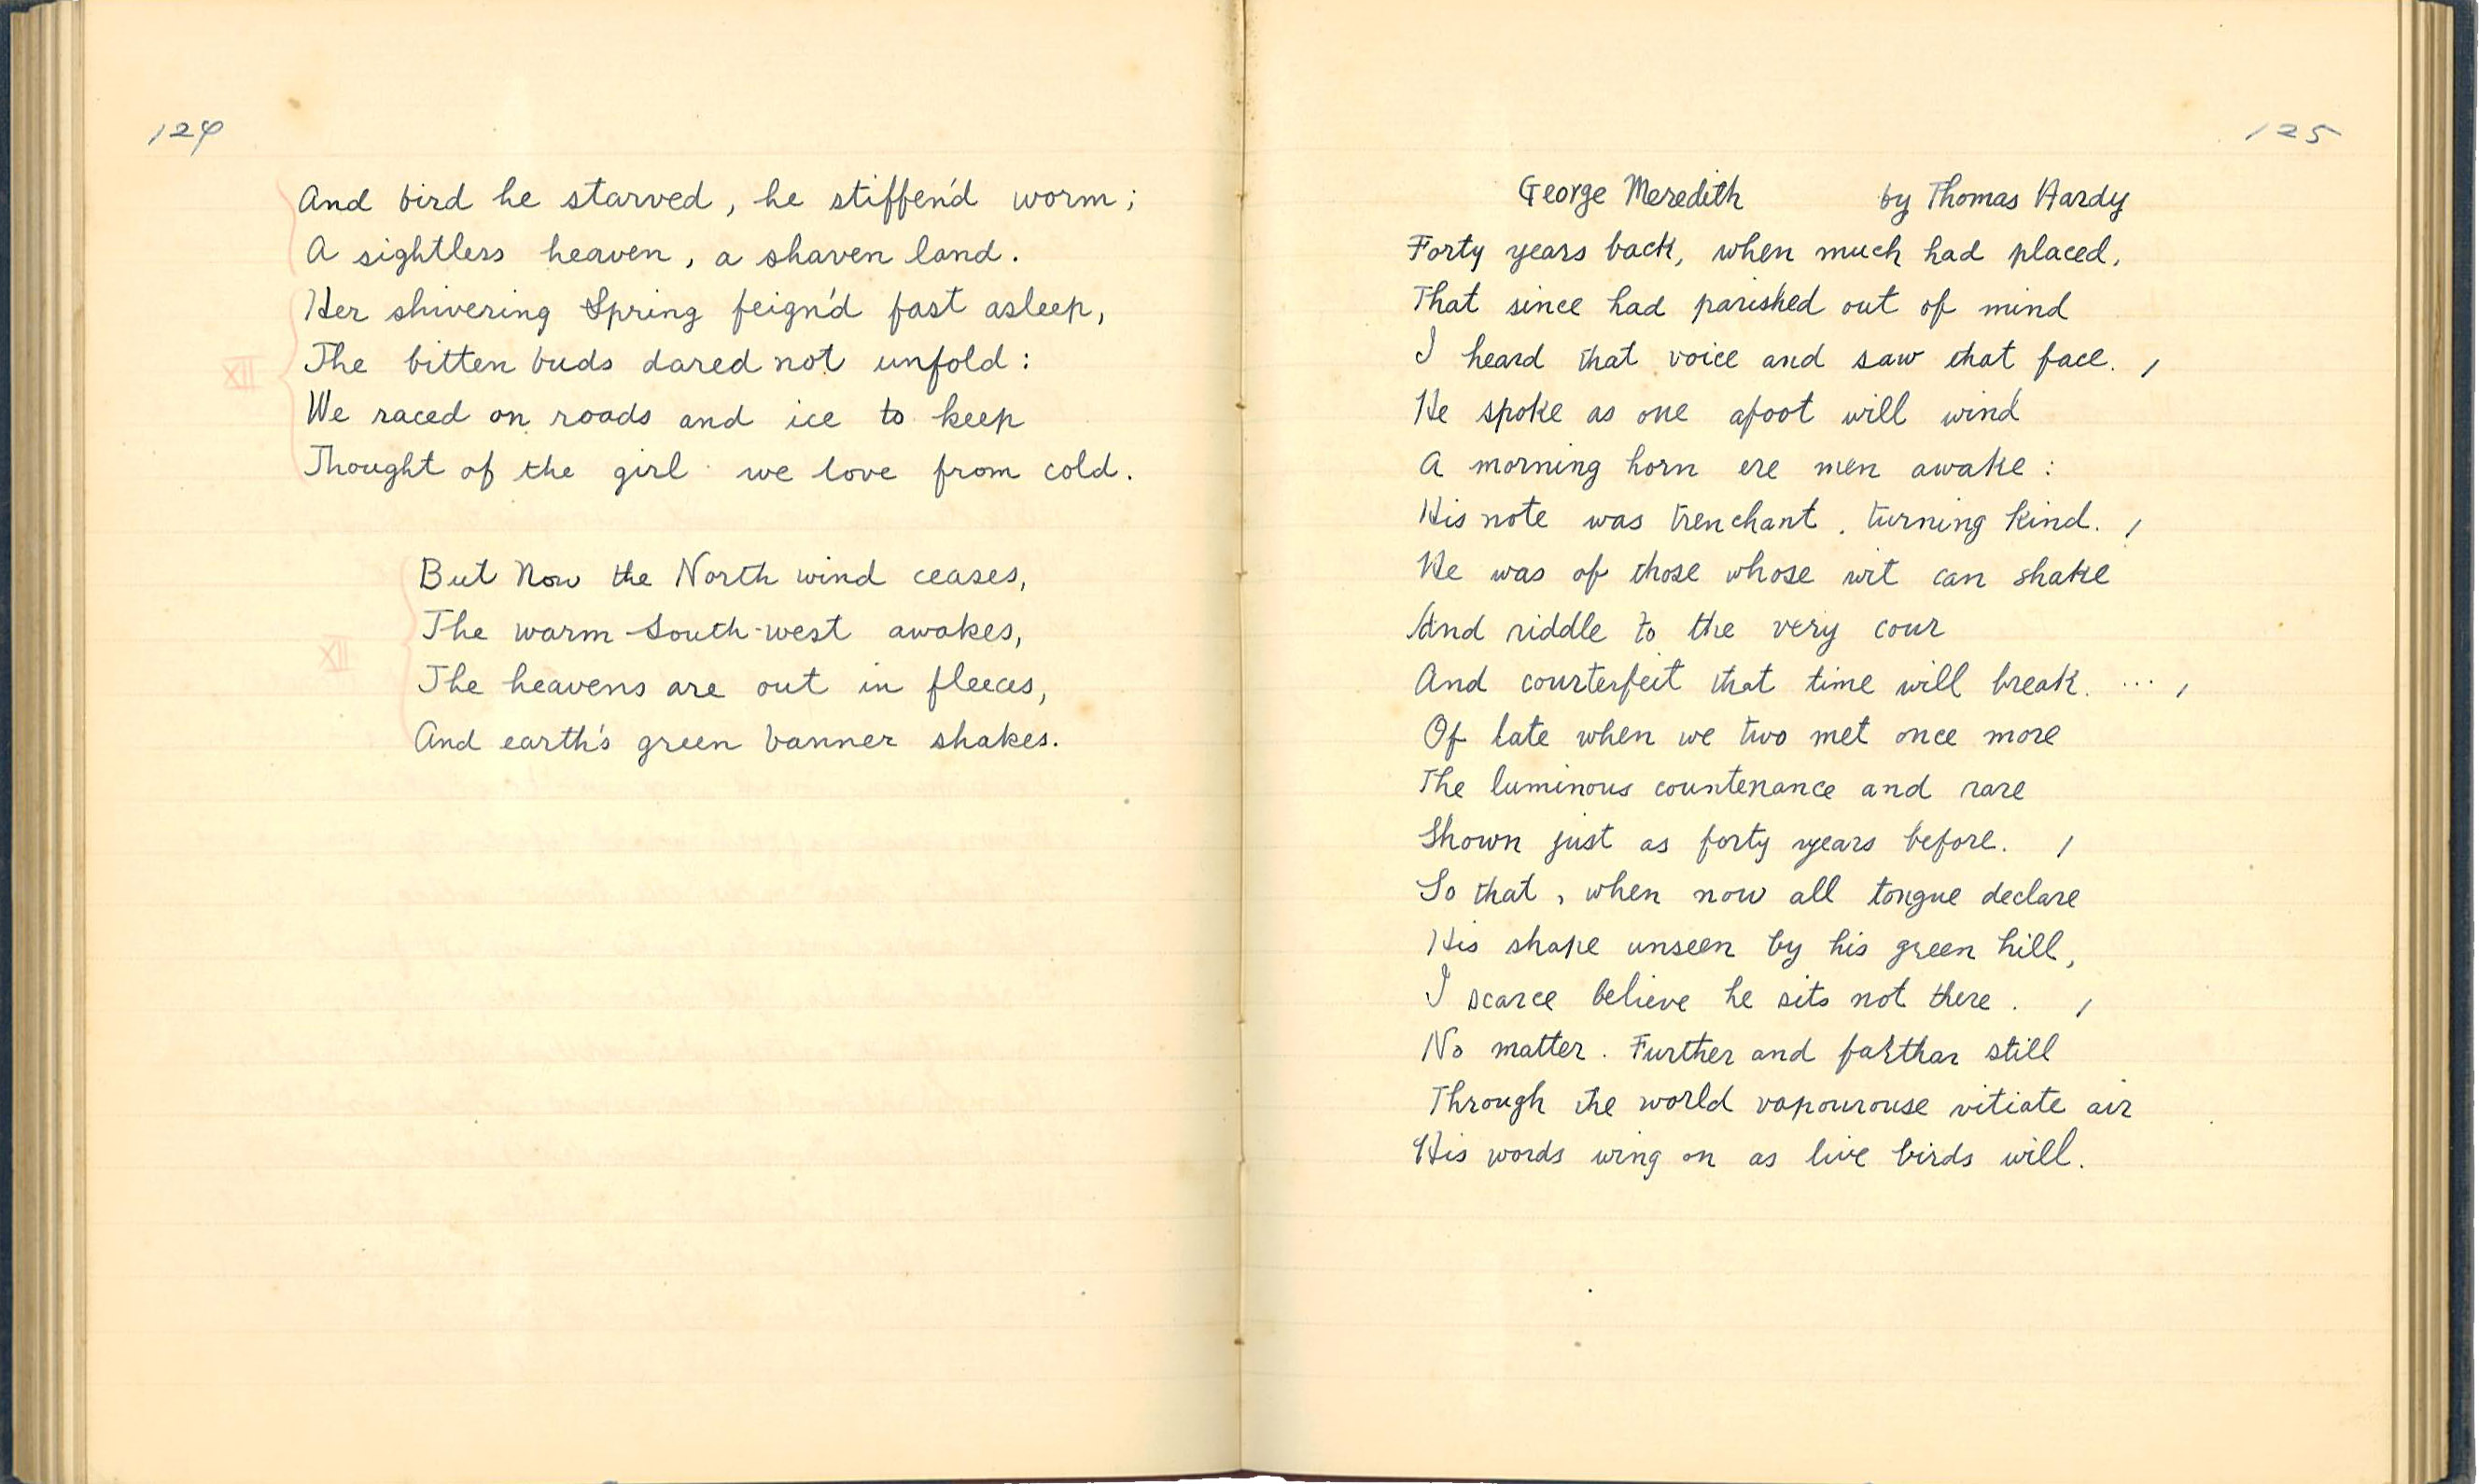 124
And bird he starved, he stiffen'd worm;
A sightless heaven, a shaven land.
Her shivering Spring feign'd fast asleep,
The bitten buds dared not unfold:
XII
We raced on roads and ice to keep
Thought of the girl we love from cold.
But Now the North wind ceases,
The warm South-west awakes,
XII
The heavens are out in fleeces,
And earth's green banner shakes.
125
George Meredith by Thomas Hardy
Forty years back, when much had placed,
That since had parished out of mind
I heard that voice and saw that face. /
He spoke as one afoot will wind
A morning horn ere men awake:
His note was trenchant. turning kind. /
He was of those whose wit can shake
And riddle to the very cour
And courterfeit that time will break. ... /
Of late when we two met once more
The luminous countenance and rare
Shown just as forty years before. /
So that, when now all tongue declare
His shape unseen by his green hill,
I scarce believe he sits not there. /
No matter. Further and farthar still
Through the world vapourouse vitiate air
His words wing on as live birds will.